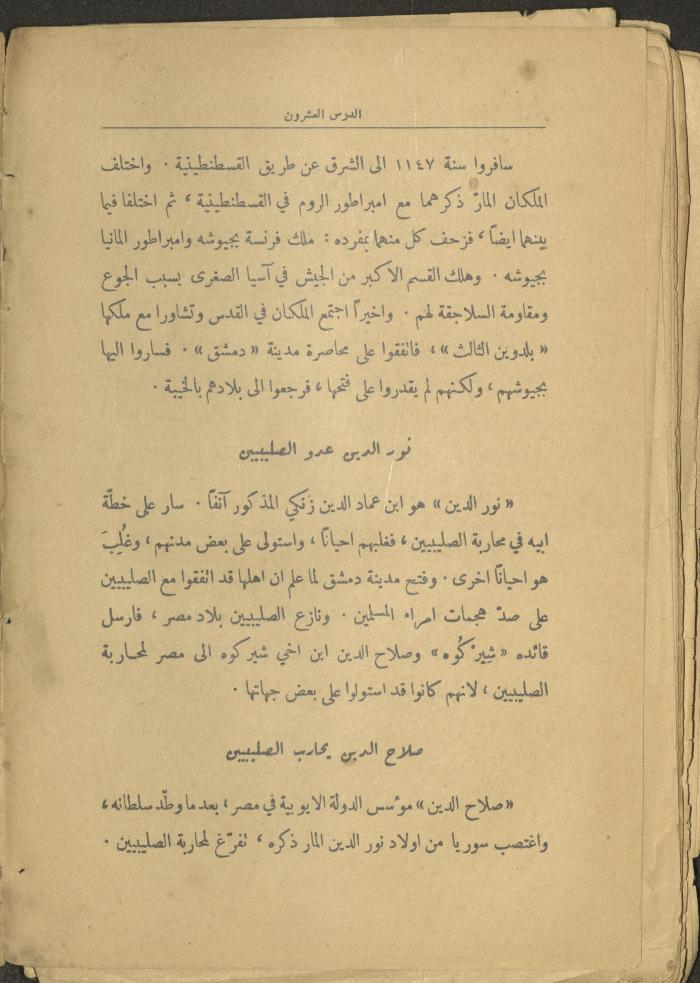 الدرس العشرون
سافروا سنة ١١٤٧ الى الشرق عن طريق القسطنطينية . واختلف
الملكان المارّ ذكرهما مع امبراطور الروم في القسطنطينية ، ثم اختلفا فيما
بينهما ايضاً ، فزحف كل منهما بمفرده : ملك فرنسة بجيوشه وامبراطور المانيا
بجيوشه . وهلك القسم الاكبر من الجيش في آسيا الصغرى بسبب الجوع
ومقاومة السلاجقة لهم . واخيراً اجتمع الملكان في القدس وتشاورا مع ملكها
« بلدوين الثالث » ، فاتفقوا على محاصرة مدينة « دمشق » . فساروا اليها
بجيوشهم ، ولكنهم لم يقدروا على فتحها ، فرجعوا الى بلادهم بالخيبة .
نور الدين عدو الصليبيين
« نور الدين » هو ابن عماد الدين زنكي المذكور آنفاً . سار على خطّة
ابيه في محاربة الصليبيين ، فغلبهم احياناً ، واستولى على بعض مدنهم ، وغُلِبَ
هو احياناً اخرى . وفتح مدينة دمشق لما علم ان اهلها قد اتفقوا مع الصليبيين
على صدّ هجمات امراء المسلمين . ونازع الصليبيين بلاد مصر ، فارسل
قائده « شِيرْكُوه » وصلاح الدين ابن اخي شيركوه الى مصر لمحاربة
الصليبيين ، لانهم كانوا قد استولوا على بعض جهاتها .
صلاح الدين يحارب الصليبيين
« صلاح الدين » مؤسس الدولة الايوبية في مصر ، بعد ما وطّد سلطانه ،
واغتصب سوريا من اولاد نور الدين المار ذكره ، تفرّغ لمحاربة الصليبيين .